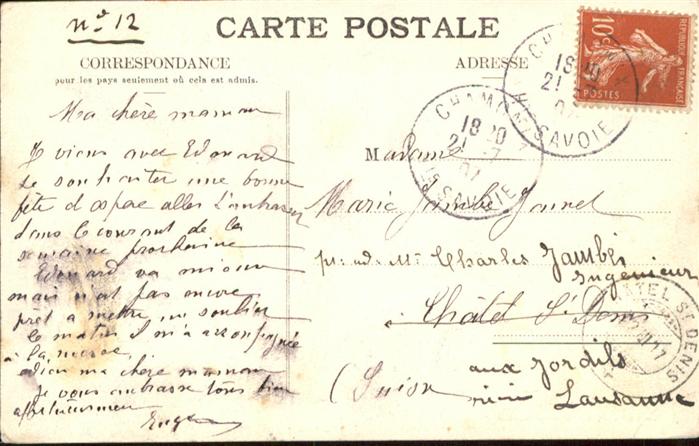 nº 12
CARTE POSTALE
CORRESPONDANCE
pour les pays seulement où cela est admis.
ADRESSE
RÉPUBLIQUE FRANÇAISE
10
POSTES
CHAMONIX
18 20
21
SAVOIE
CHAMONIX
18 20
21 7
07
HTE SAVOIE
Ma chère maman
Je viens avec Edouard
te souhaiter une bonne
fête j'espère aller t'embrasser
dans le courant de la
semaine prochaine
Edouard va mieux
mais n'est pas encore
prêt à mettre un soulier
le matin il m'a accompagnée
à la messe
adieu ma chère maman
je vous embrasse tous bien
affectueusement
Madame
Marie Jambé
pr. ad. Mr Charles Jambé
Ingénieur
Châtel St Denis
aux Jordils
(Suisse
Lausanne
CHATEL ST DENIS